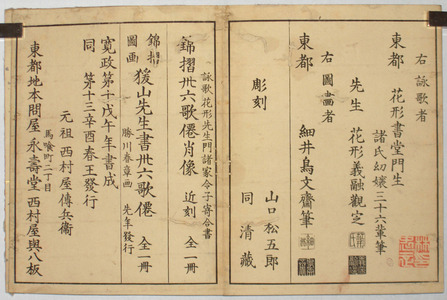 右詠歌者
東都 花形書堂門生
諸氏幼孃三十六輩筆
先生 花形義融觀定
右圖畫者
東都 細井鳥文齋筆
彫刻 山口松五郎
同 清藏
詠歌花形先生門諸家令子寄合書
錦摺卅六歌僊肖像 近刻 全一冊
錦摺國画 猨山先生書卅六歌僊 全一冊
勝川春章画 先年發行
寛政第十戊午年書成
同 第十三辛酉春王發行
元祖西村屋傳兵衞
馬喰町二丁目
東都地本問屋永壽堂西村屋與八板